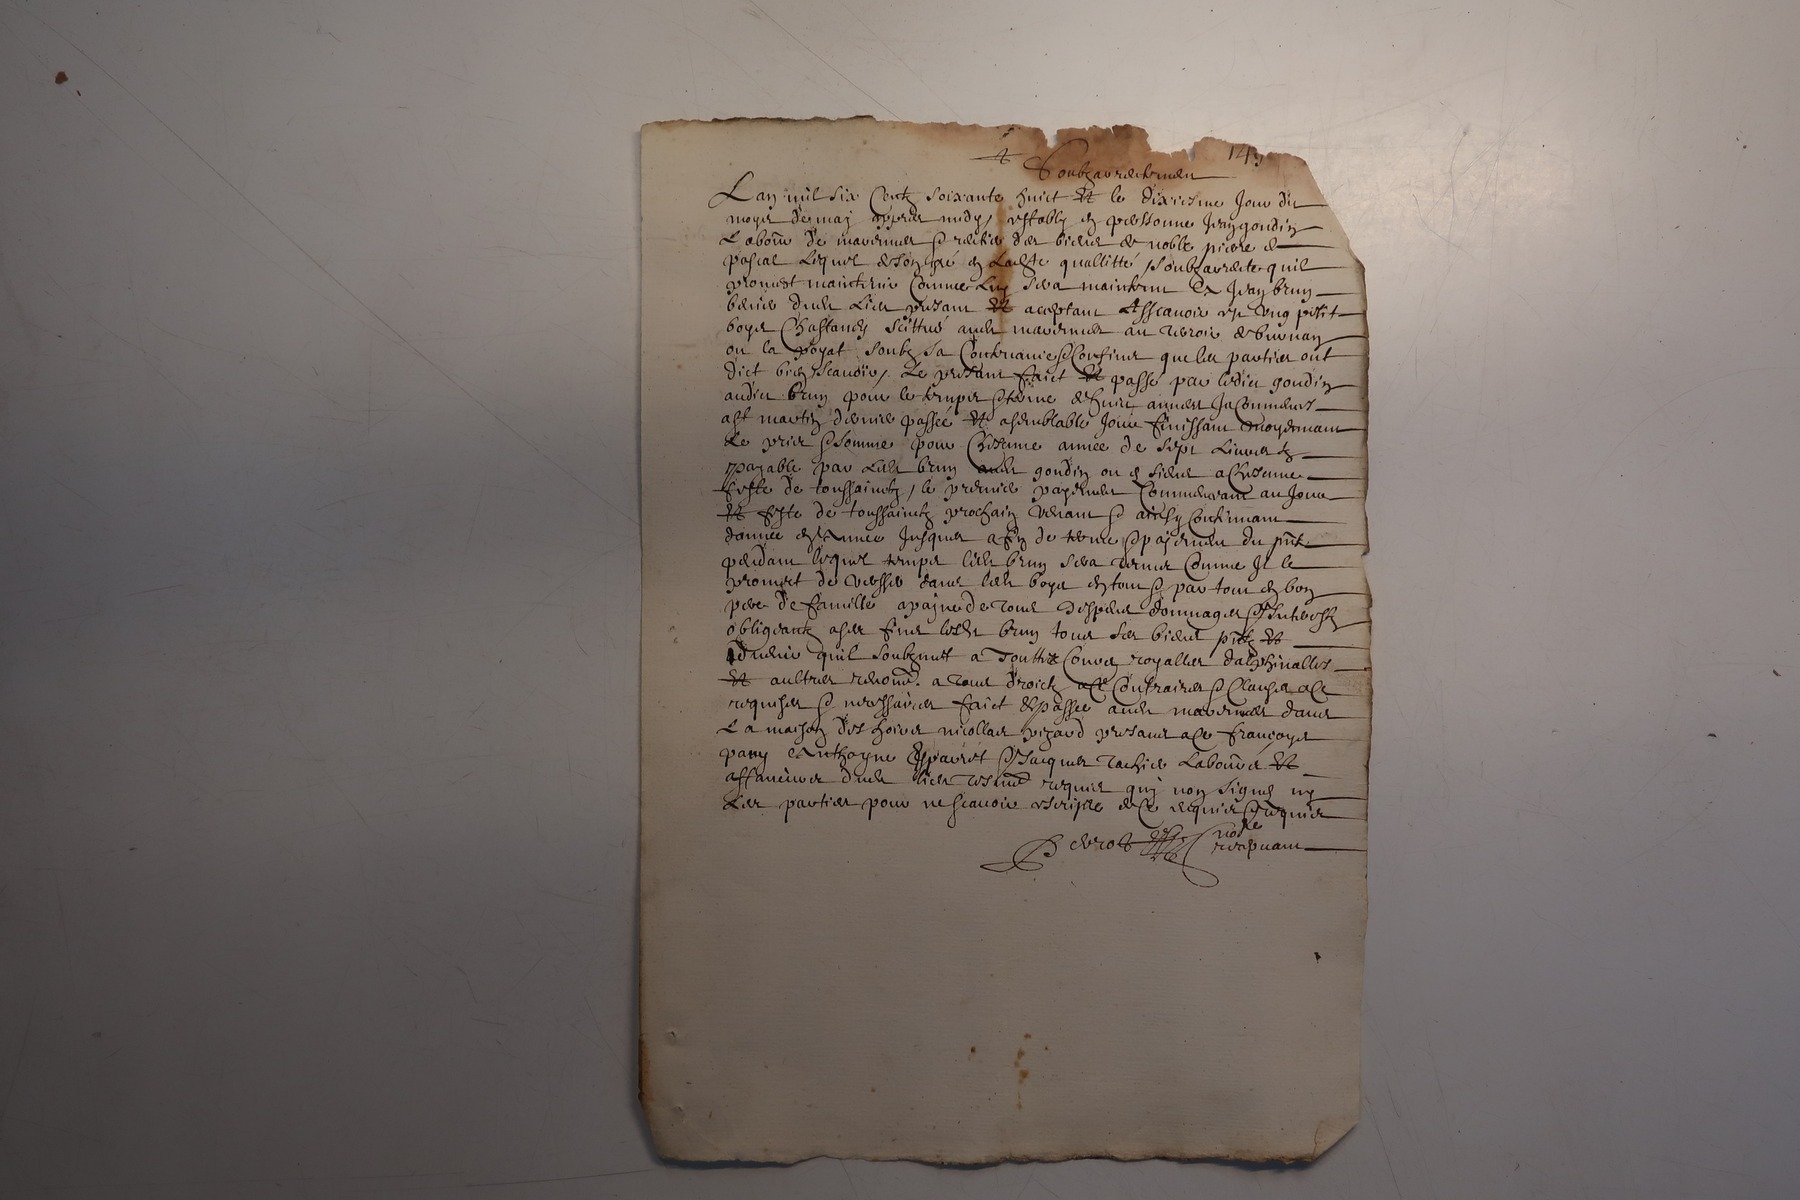 149
Soubzarrentement
L'an mil six centz soixante huict et le dixiesme jour du
moys de may appres midy, estably en personne Jean gondin
Laboureur de rentier des biens de noble pierre de
pascal Lequel de son gré en Ladicte quallitté, soubzarrente quil
promet maintenir comme Luy sera maintenu a Jean brun
dudit Lieu presant et acceptant Assavoir est ung petit
boys Chastaney scittué audit au terroir de
ou la soubz sa Contenance & Confins que les parties ont
dict bien scavoir, Le presant faict et passé par ledict gondin
audict brun pour le temps & terme de huict années Ja Commencés
a st martin dernier passée et a semblable Jour finissant moyenant
Le prix & somme pour Chescune année de sept Livres tz
payable par Ledit brun audit gondin ou es siens a Chescune
feste de toussaintz, le premier payement Commencant au Jour
et feste de toussaintz prochain venant & ainsy Continuant
dannée en Année Jusques a fin de terme & payement du pnt
pendant lequel temps ledit brun sera tenu Comme Il le
promet de verser dans ledit boys en tout & par tout en bon
pere de famille a payne de tous despens dommages & Interestz
obligeant a ses fins ledit brun tous ses biens pntz et
advenir quil soubzmet a Touttes Cours royalles dalphinalles
et aultres renonce a tous droictz a ce Contraires & Clauses a ce
requises & necessaires faict & passée audit dans
La maison des hoirs nicollas presans a ce françoys
Anthoyne & Jacques Laboureurs et
dudit lieu tesmoins requis quy non signés ny
Les parties pour ne scavoir escripre de ce requis & requis
notre
recepvant